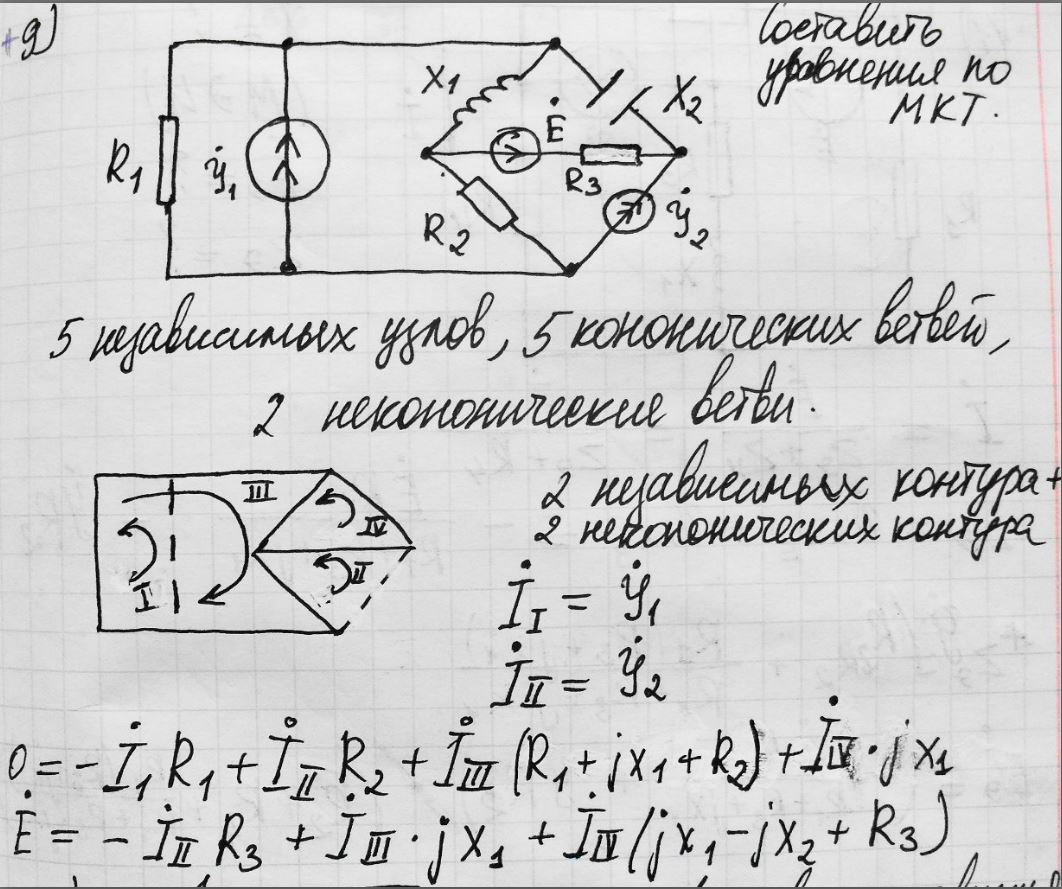 + g)
Составить
уравнения по
МКТ.
X1
X2
Ė
R1
ẏ1
R3
R2
ẏ2
5 независимых узлов, 5 кононических ветвей,
2 неканонические ветви.
III
IV
II
I
2 независимых контура +
2 неканонических контура
İ_I = ẏ1
İ_II = ẏ2
0 = - İ1 R1 + İ_II R2 + İ_III (R1 + jx1 + R2) + İ_IV · j x1
Ė = - İ_II R3 + İ_III · j x1 + İ_IV (jx1 - jx2 + R3)